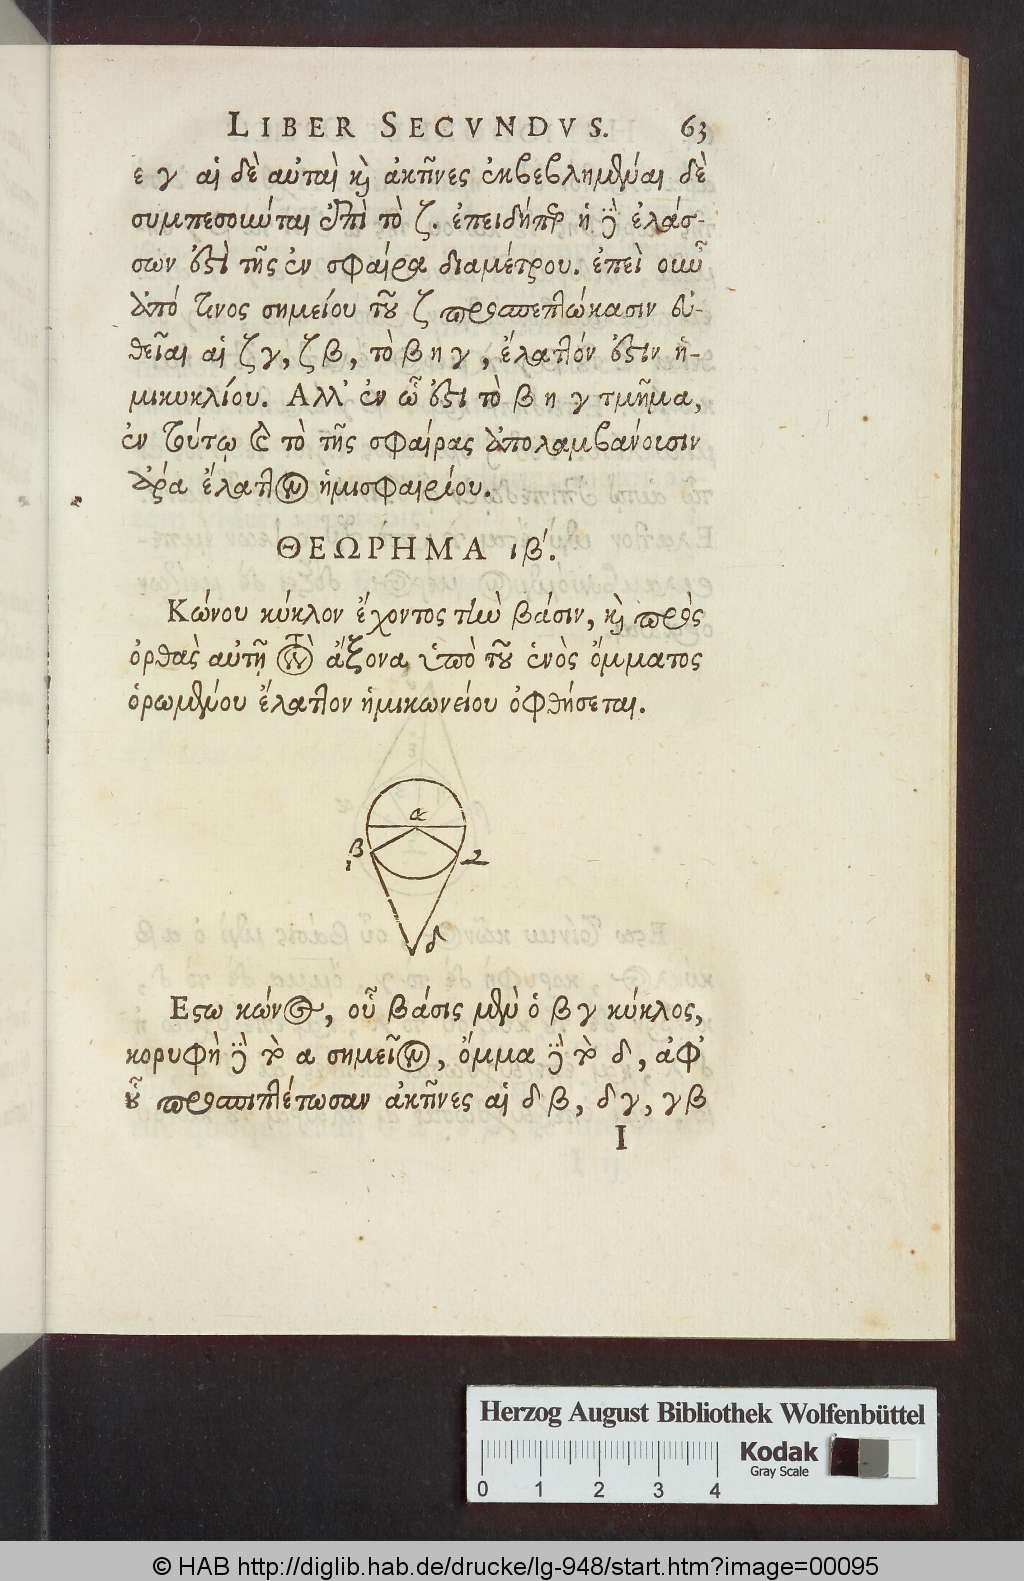 LIBER SECVNDVS. 63
ε γ αἱ δὲ αὐταὶ καὶ ἀκτῖνες ἐκβεβλημέναι δὲ
συμπεσοῦνται ἐπὶ τὸ ζ. ἐπειδήπερ ἡ ηγ ἐλάσ-
σων ἐστὶ τῆς ἐν σφαίρᾳ διαμέτρου. ἐπεὶ οὖν
ἀπό τινος σημείου τοῦ ζ προσπεπτώκασιν εὐ-
θεῖαι αἱ ζ γ, ζ β, τὸ β η γ, ἔλαττόν ἐστιν ἡ-
μικυκλίου. Ἀλλ' ἐν ᾧ ἐστι τὸ β η γ τμῆμα,
ἐν τούτῳ καὶ τὸ τῆς σφαίρας ἀπολαμβάνουσιν
ἄρα ἔλαττον ἡμισφαιρίου.
ΘΕΩΡΗΜΑ ιβ'.
Κώνου κύκλον ἔχοντος τὴν βάσιν, καὶ πρὸς
ὀρθὰς αὐτῇ τὸν ἄξονα, ὑπὸ τοῦ ἑνὸς ὄμματος
ὁρωμένου ἔλαττον ἡμικωνείου ὀφθήσεται.
α
β
1
2
δ
Εστω κῶνος, οὗ βάσις μὲν ὁ β γ κύκλος,
κορυφὴ δὲ τὸ α σημεῖον, ὄμμα δὲ τὸ δ, ἀφ'
οὗ προσπιπτέτωσαν ἀκτῖνες αἱ δ β, δ γ, γ β
I
Herzog August Bibliothek Wolfenbüttel
Kodak
Gray Scale
0 1 2 3 4
© HAB http://diglib.hab.de/drucke/lg-948/start.htm?image=00095